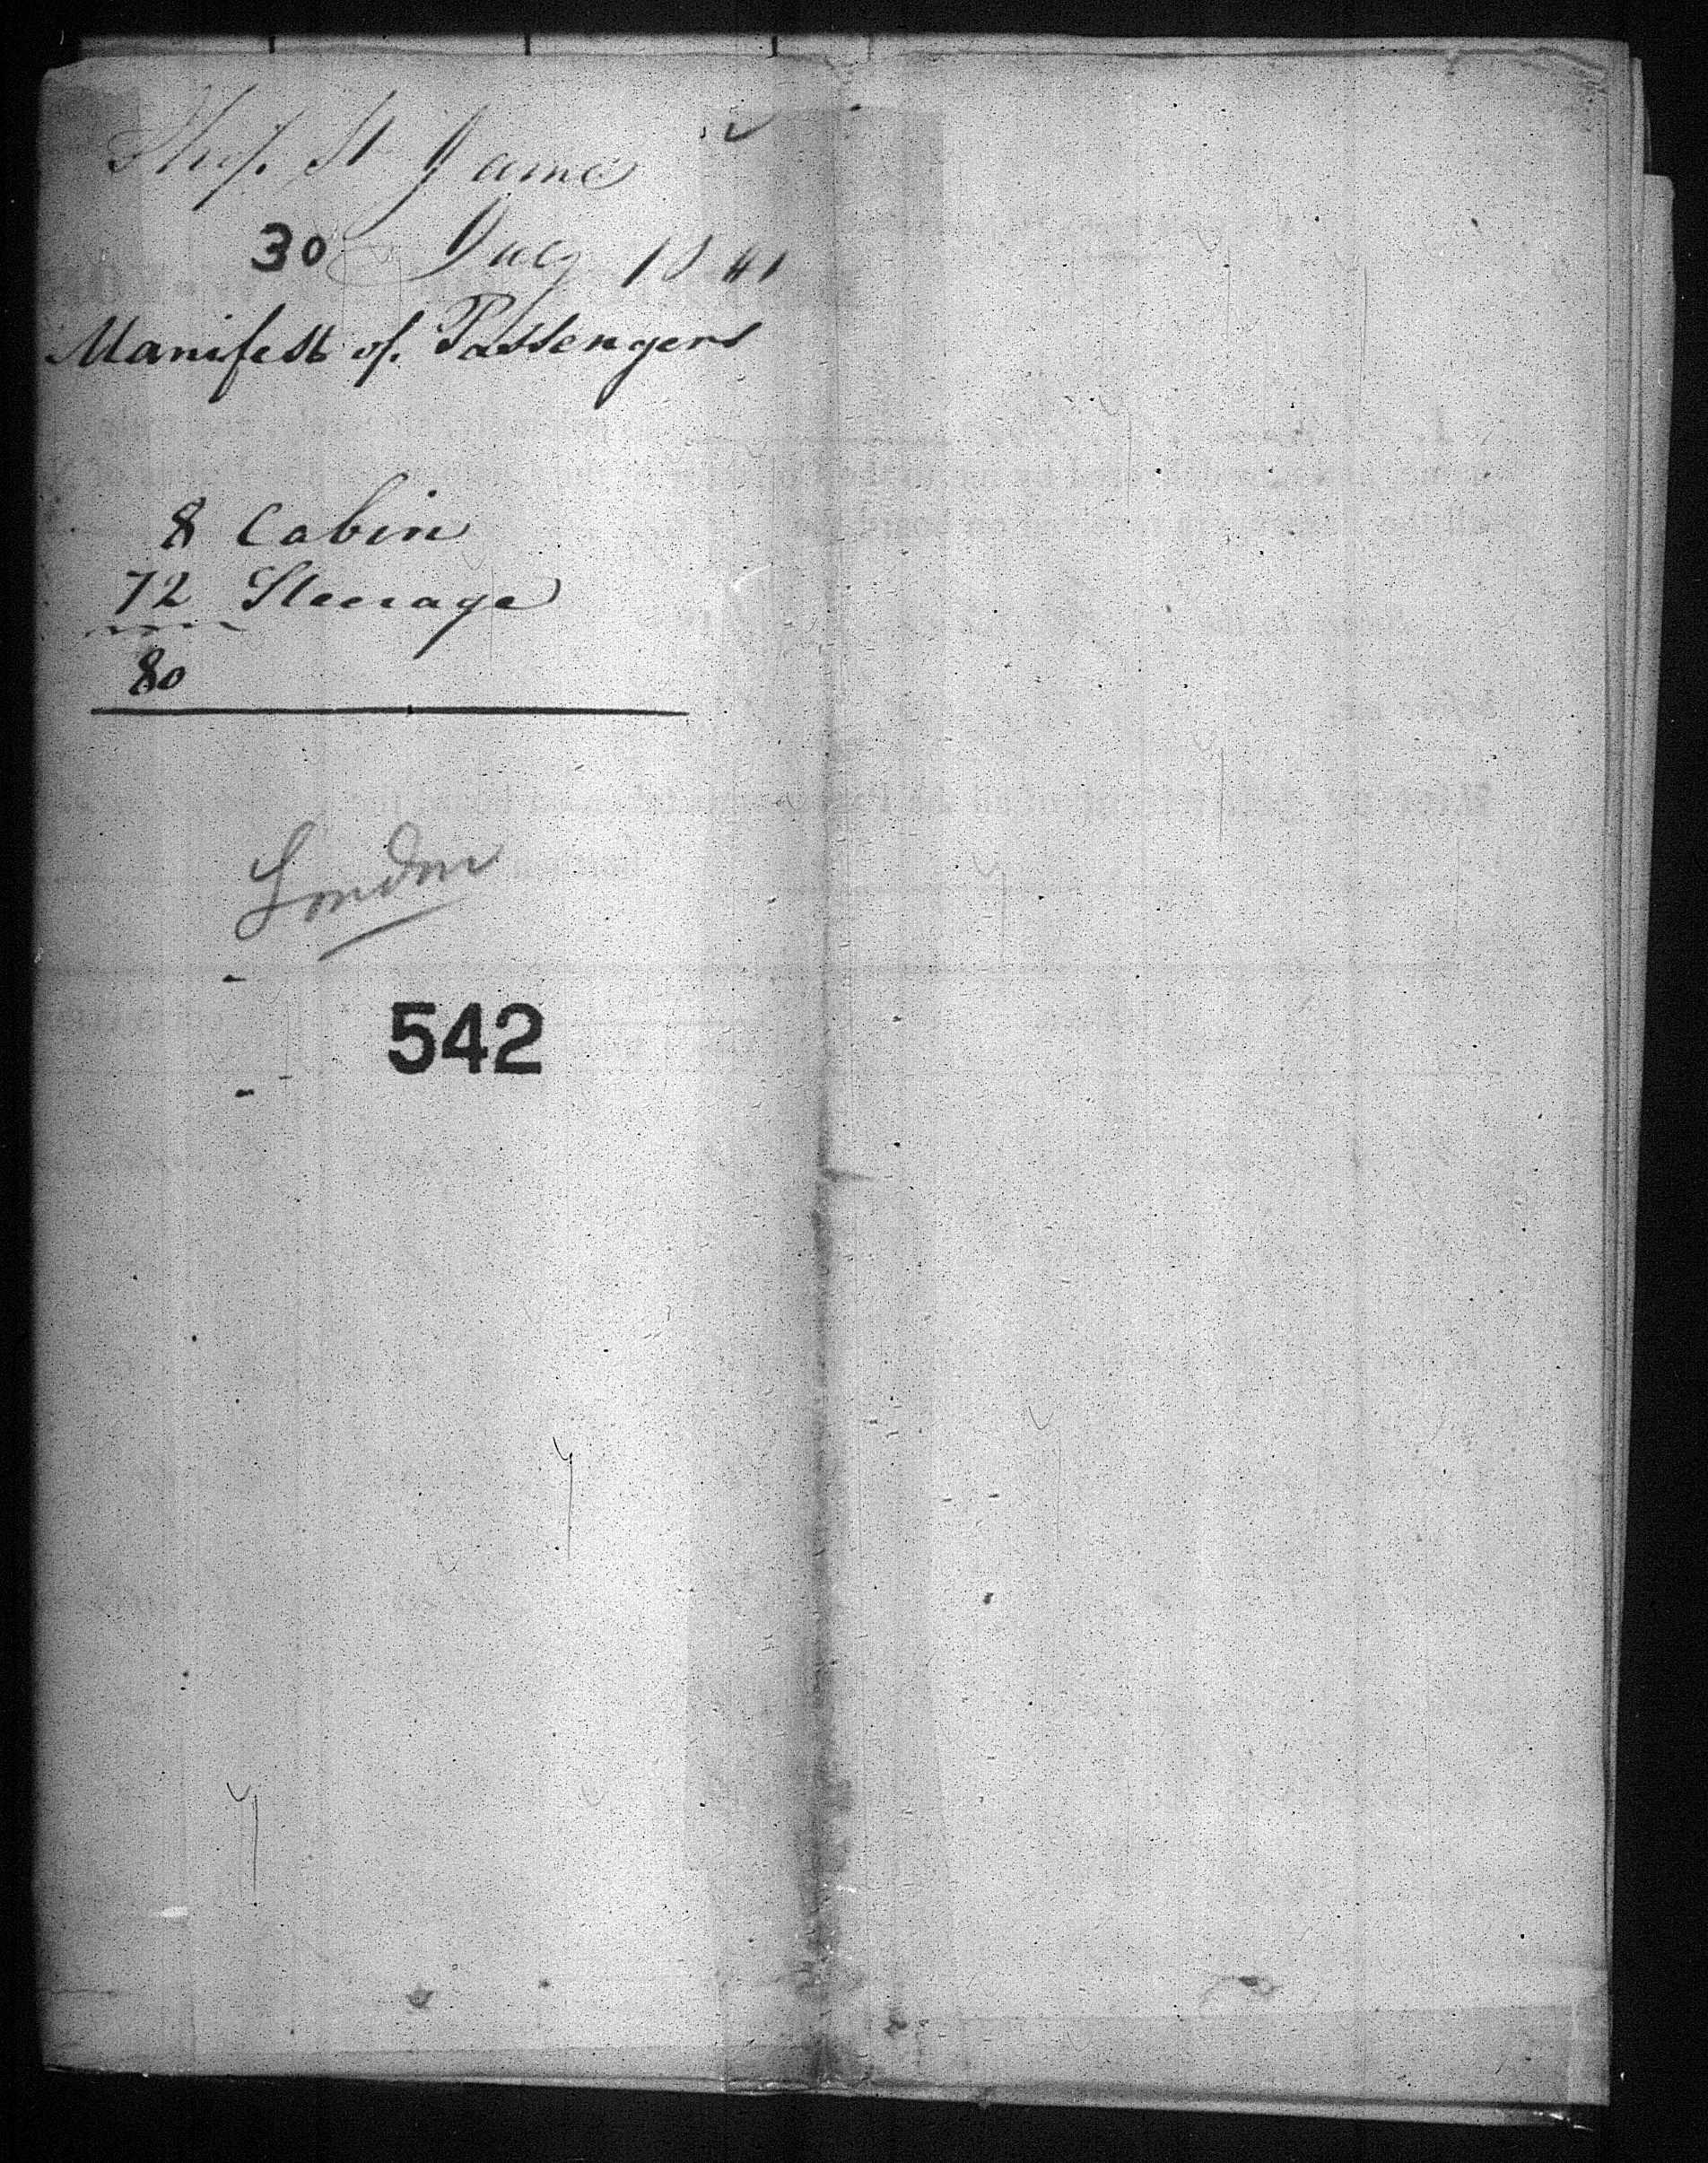 Ship St James
30 July 1841
Manifest of Passengers
8 Cabin
72 Steerage
80
London
542